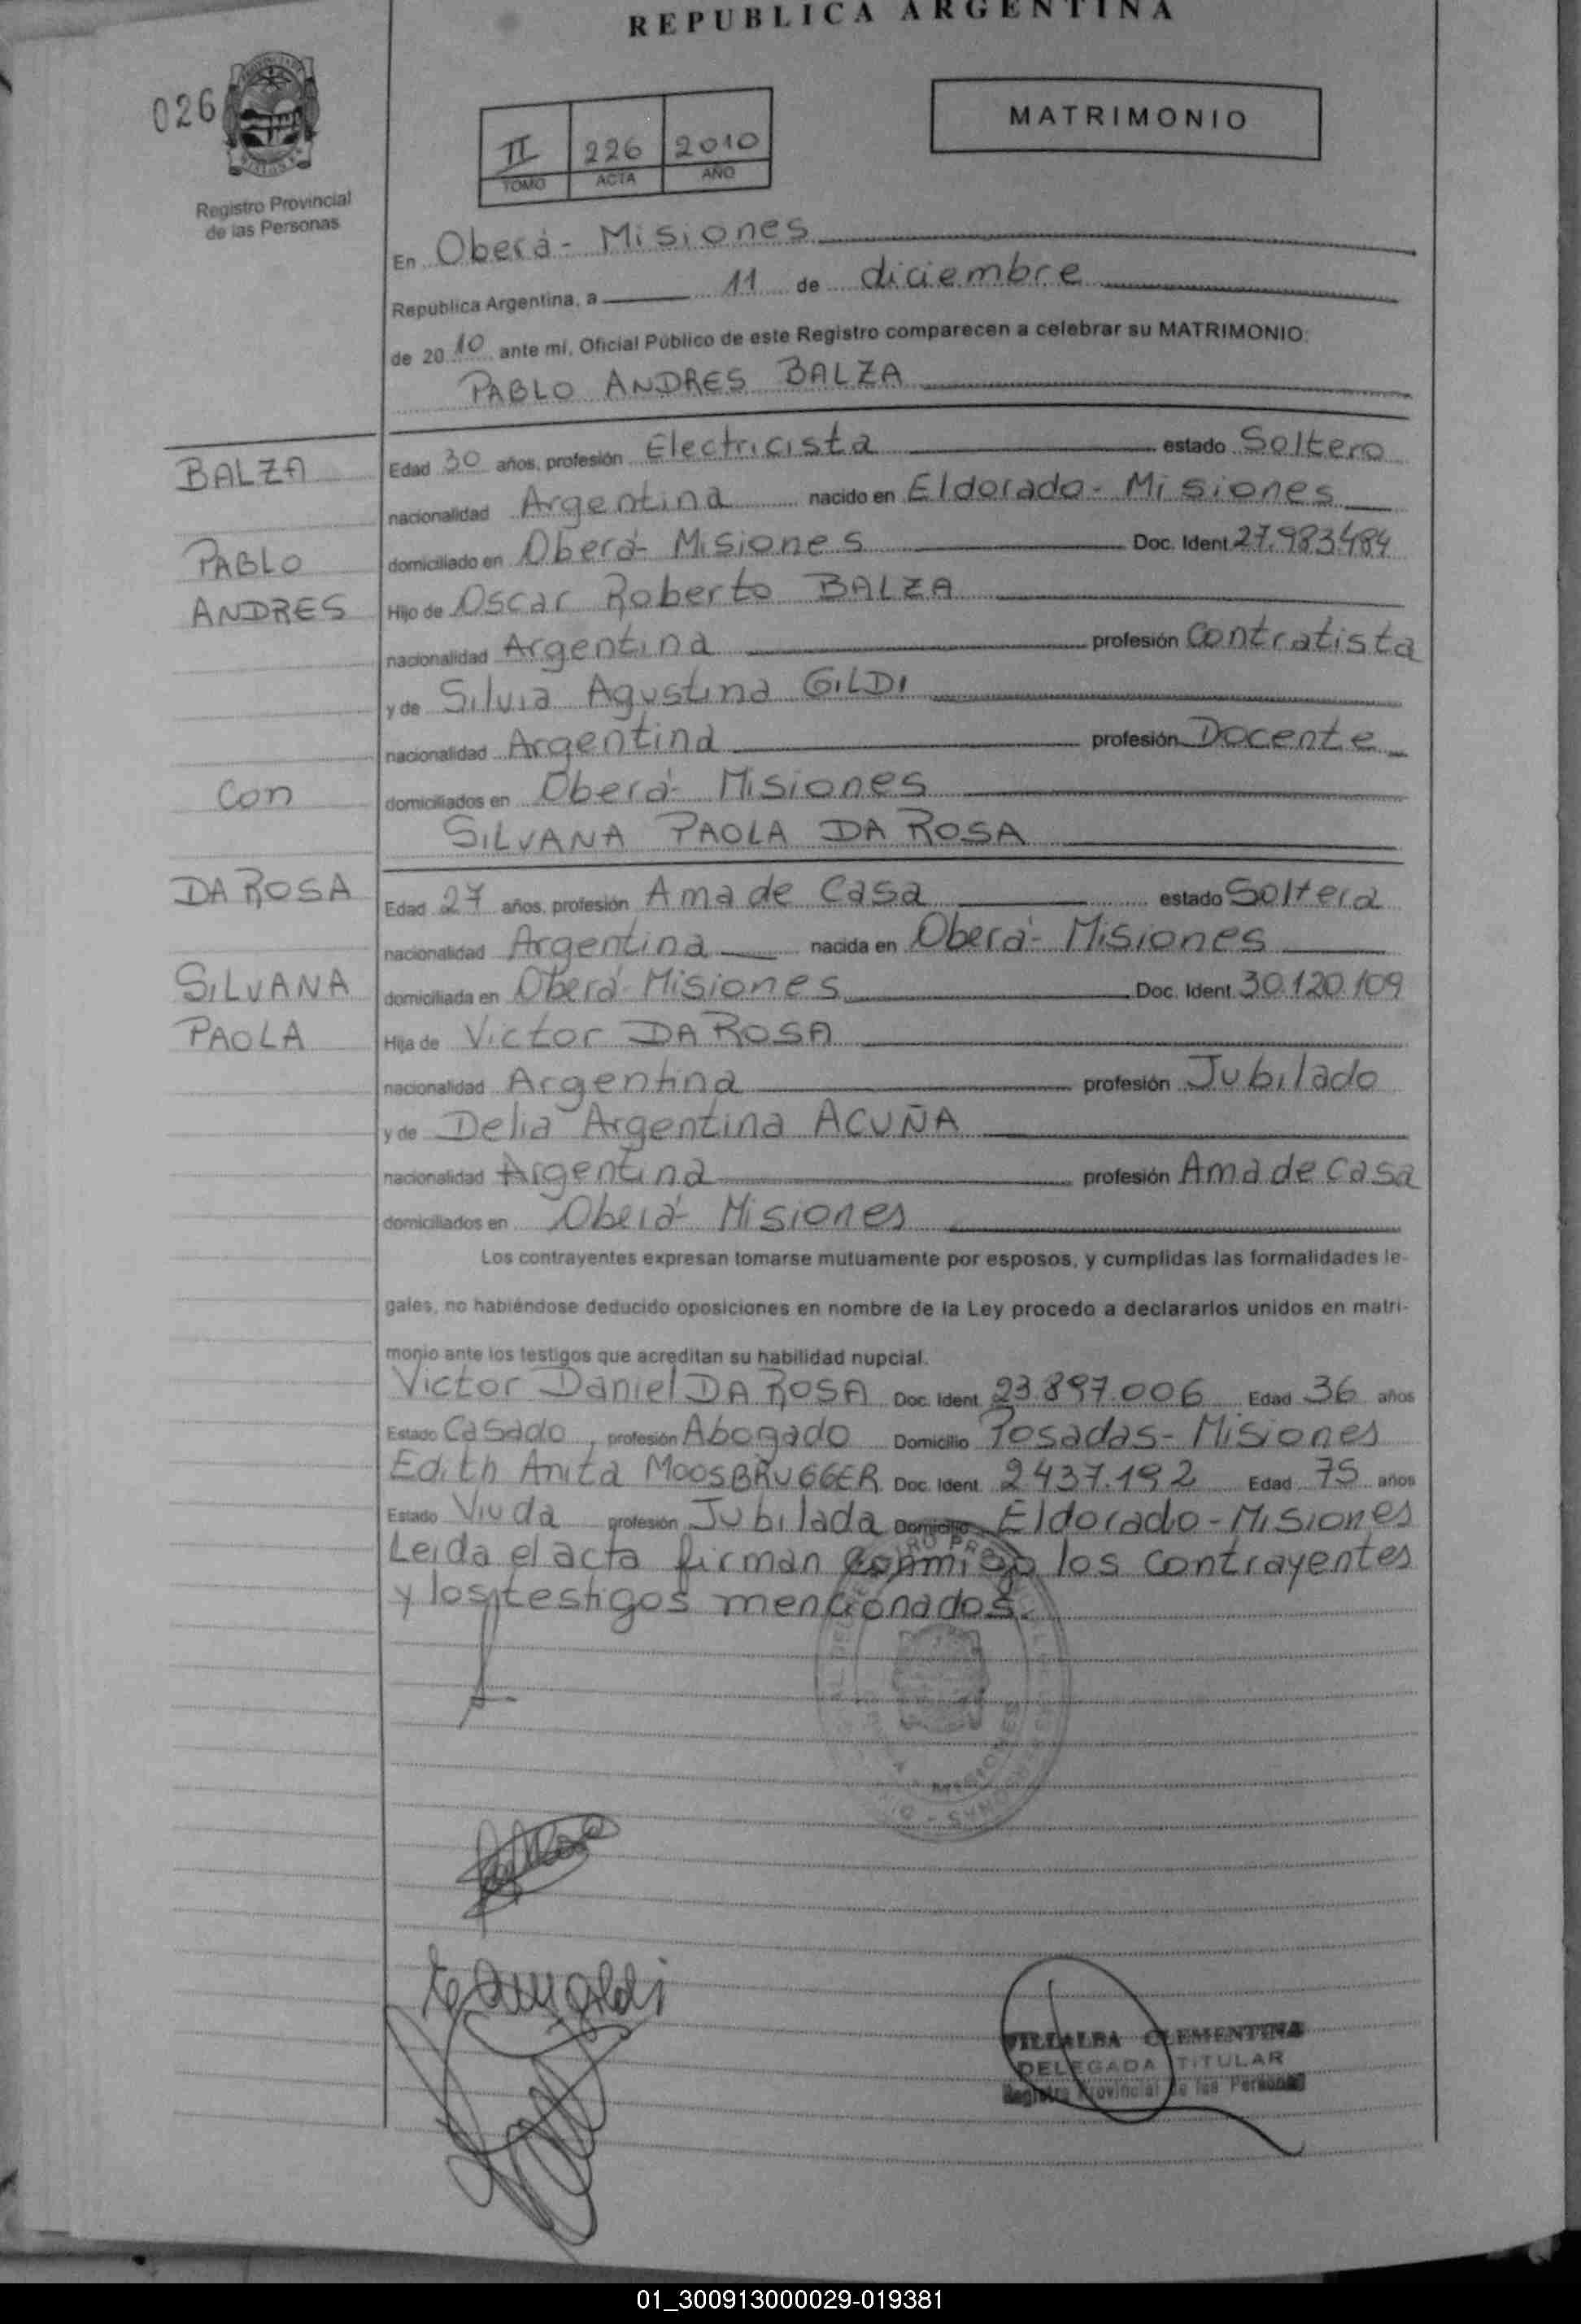 REPUBLICA ARGENTINA
026
MATRIMONIO
II 226 2010
TOMO ACTA AÑO
Registro Provincial
de las Personas
En Oberá - Misiones
Republica Argentina, a 11 de diciembre
de 2010 ante mí, Oficial Público de este Registro comparecen a celebrar su MATRIMONIO:
PABLO ANDRES BALZA
BALZA Edad 30 años, profesión Electricista estado Soltero
nacionalidad Argentina nacido en Eldorado - Misiones
PABLO domiciliado en Oberá - Misiones Doc. Ident. 27.983.484
ANDRES Hijo de Oscar Roberto BALZA
nacionalidad Argentina profesión Contratista
y de Silvia Agustina GILDI
nacionalidad Argentina profesión Docente
Con domiciliados en Oberá - Misiones
SILVANA PAOLA DA ROSA
DA ROSA Edad 27 años, profesión Ama de Casa estado Soltera
nacionalidad Argentina nacida en Oberá - Misiones
SILVANA domiciliada en Oberá - Misiones Doc. Ident. 30.120.109
PAOLA Hija de Victor DA ROSA
nacionalidad Argentina profesión Jubilado
y de Delia Argentina ACUÑA
nacionalidad Argentina profesión Ama de Casa
domiciliados en Oberá - Misiones
Los contrayentes expresan tomarse mutuamente por esposos, y cumplidas las formalidades le-
gales, no habiéndose deducido oposiciones en nombre de la Ley procedo a declararlos unidos en matri-
monio ante los testigos que acreditan su habilidad nupcial.
Victor Daniel DA ROSA Doc. Ident. 23.897.006 Edad 36 años
Estado Casado, profesión Abogado Domicilio Posadas - Misiones
Edith Anita MOOSBRUGGER Doc. Ident. 2437.192 Edad 75 años
Estado Viuda profesión Jubilada Domicilio Eldorado - Misiones
Leida el acta firman conmigo los contrayentes
y los testigos mencionados.
VILLALBA CLEMENTINA
DELEGADA TITULAR
Registro Provincial de las Personas
01_300913000029-019381